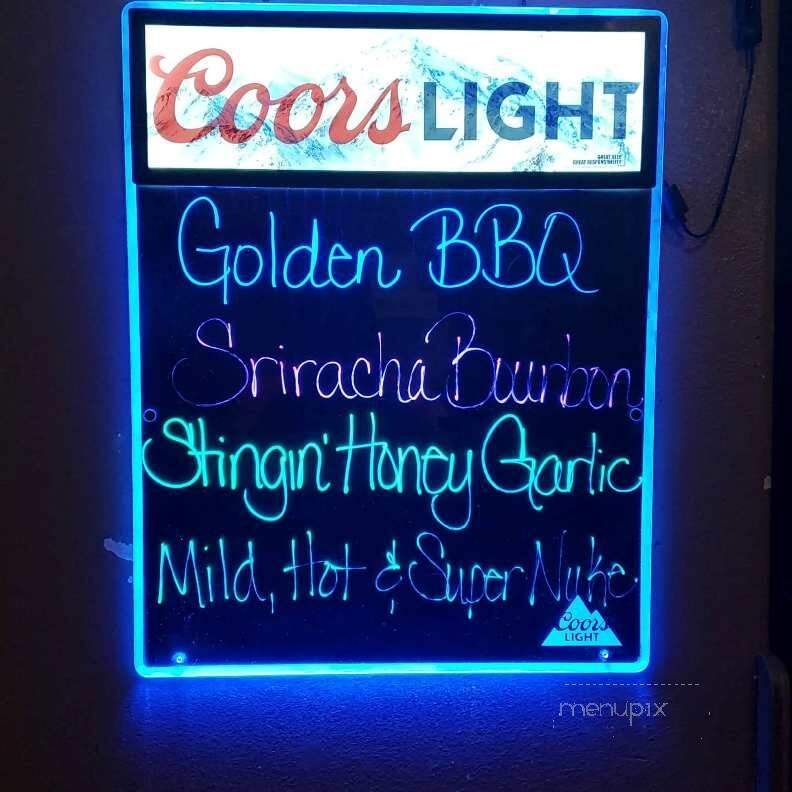 Coors LIGHT
GREAT BEER
GREAT RESPONSIBILITY
Golden BBQ
Sriracha Bourbon
Stingin' Honey Garlic
Mild, Hot & Super Nuke
Coors
LIGHT
menupix